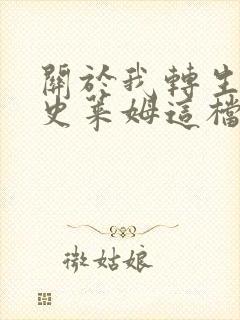 關於我轉生
史萊姆這檔
微姑娘